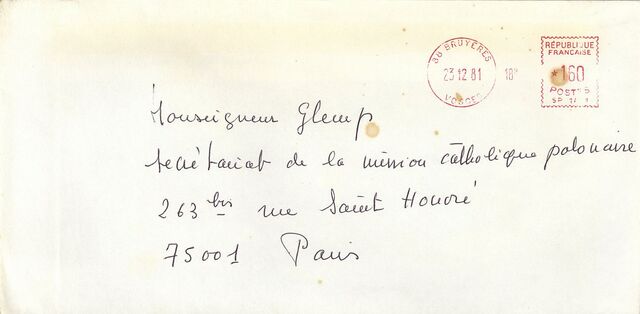 88 BRUYERES
23 12 81 18H
VOSGES
RÉPUBLIQUE
FRANÇAISE
*160
POSTES
Monseigneur Glemp
secrétariat de la mission catholique polonaise
263 bis rue Saint Honoré
75001 Paris